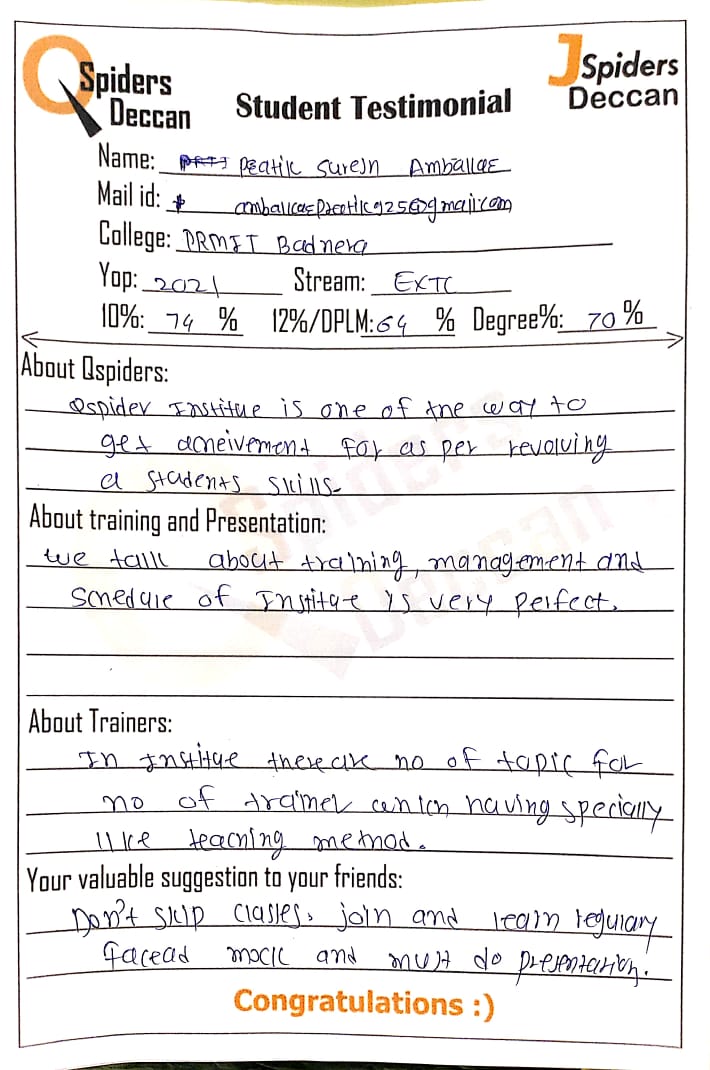 QSpiders
Deccan
JSpiders
Deccan
Student Testimonial
Name: Peatik Suresh Amballae
Mail id:
College: PRMIT Badnera
Yop: 2021 Stream: EXTC
10%: 74 % 12%/DPLM: 64 % Degree%: 70 %
About Qspiders:
Qspider Institue is one of the way to
get acheivement for as per revolving
a students skills
About training and Presentation:
we talk about training, management and
schedule of Institue is very perfect.
About Trainers:
In Institue there are no of topic for
no of trainer which having specially
like teaching method.
Your valuable suggestion to your friends:
Don't skip classes, join and learn regulary
facead mock and must do presentation.
Congratulations :)
Spiders
Deccan